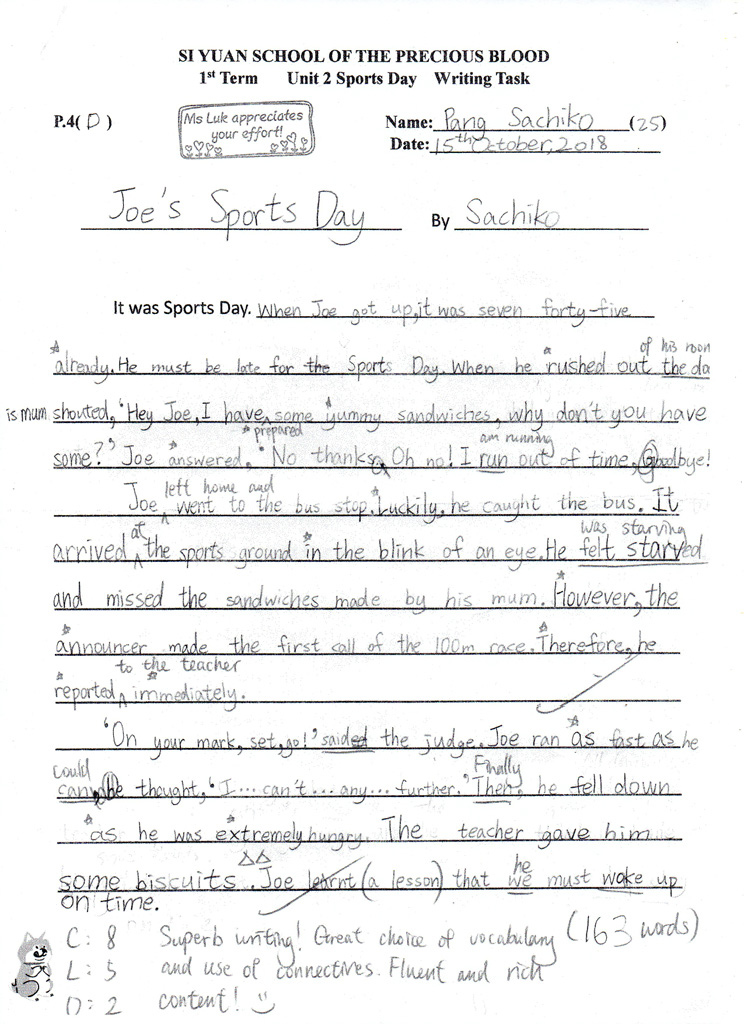 SI YUAN SCHOOL OF THE PRECIOUS BLOOD
1st Term Unit 2 Sports Day Writing Task
P.4( D )
Ms Luk appreciates
your effort!
Name: Pang Sachiko (25)
Date: 15th October, 2018
Joe's Sports Day By Sachiko
It was Sports Day. When Joe got up, it was seven forty-five
already. He must be late for the Sports Day. When he rushed out the do
of his room
is mum shouted, 'Hey Joe, I have some yummy sandwiches, why don't you have
prepared
am running
some?' Joe answered, 'No thanks. Oh no! I run out of time, Goodbye!
left home and
Joe went to the bus stop. Luckily, he caught the bus. It
at
was starving
arrived the sports ground in the blink of an eye. He felt starved
and missed the sandwiches made by his mum. However, the
announcer made the first call of the 100m race. Therefore, he
to the teacher
reported immediately.
'On your mark, set, go!' saided the judge. Joe ran as fast as he
could
Finally
can, he thought, 'I... can't... any... further.' Then, he fell down
as he was extremely hungry. The teacher gave him
he
some biscuits. Joe learnt (a lesson) that we must wake up
on time.
C: 8 Superb writing! Great choice of vocabulary (163 words)
L: 5 and use of connectives. Fluent and rich
O: 2 content!